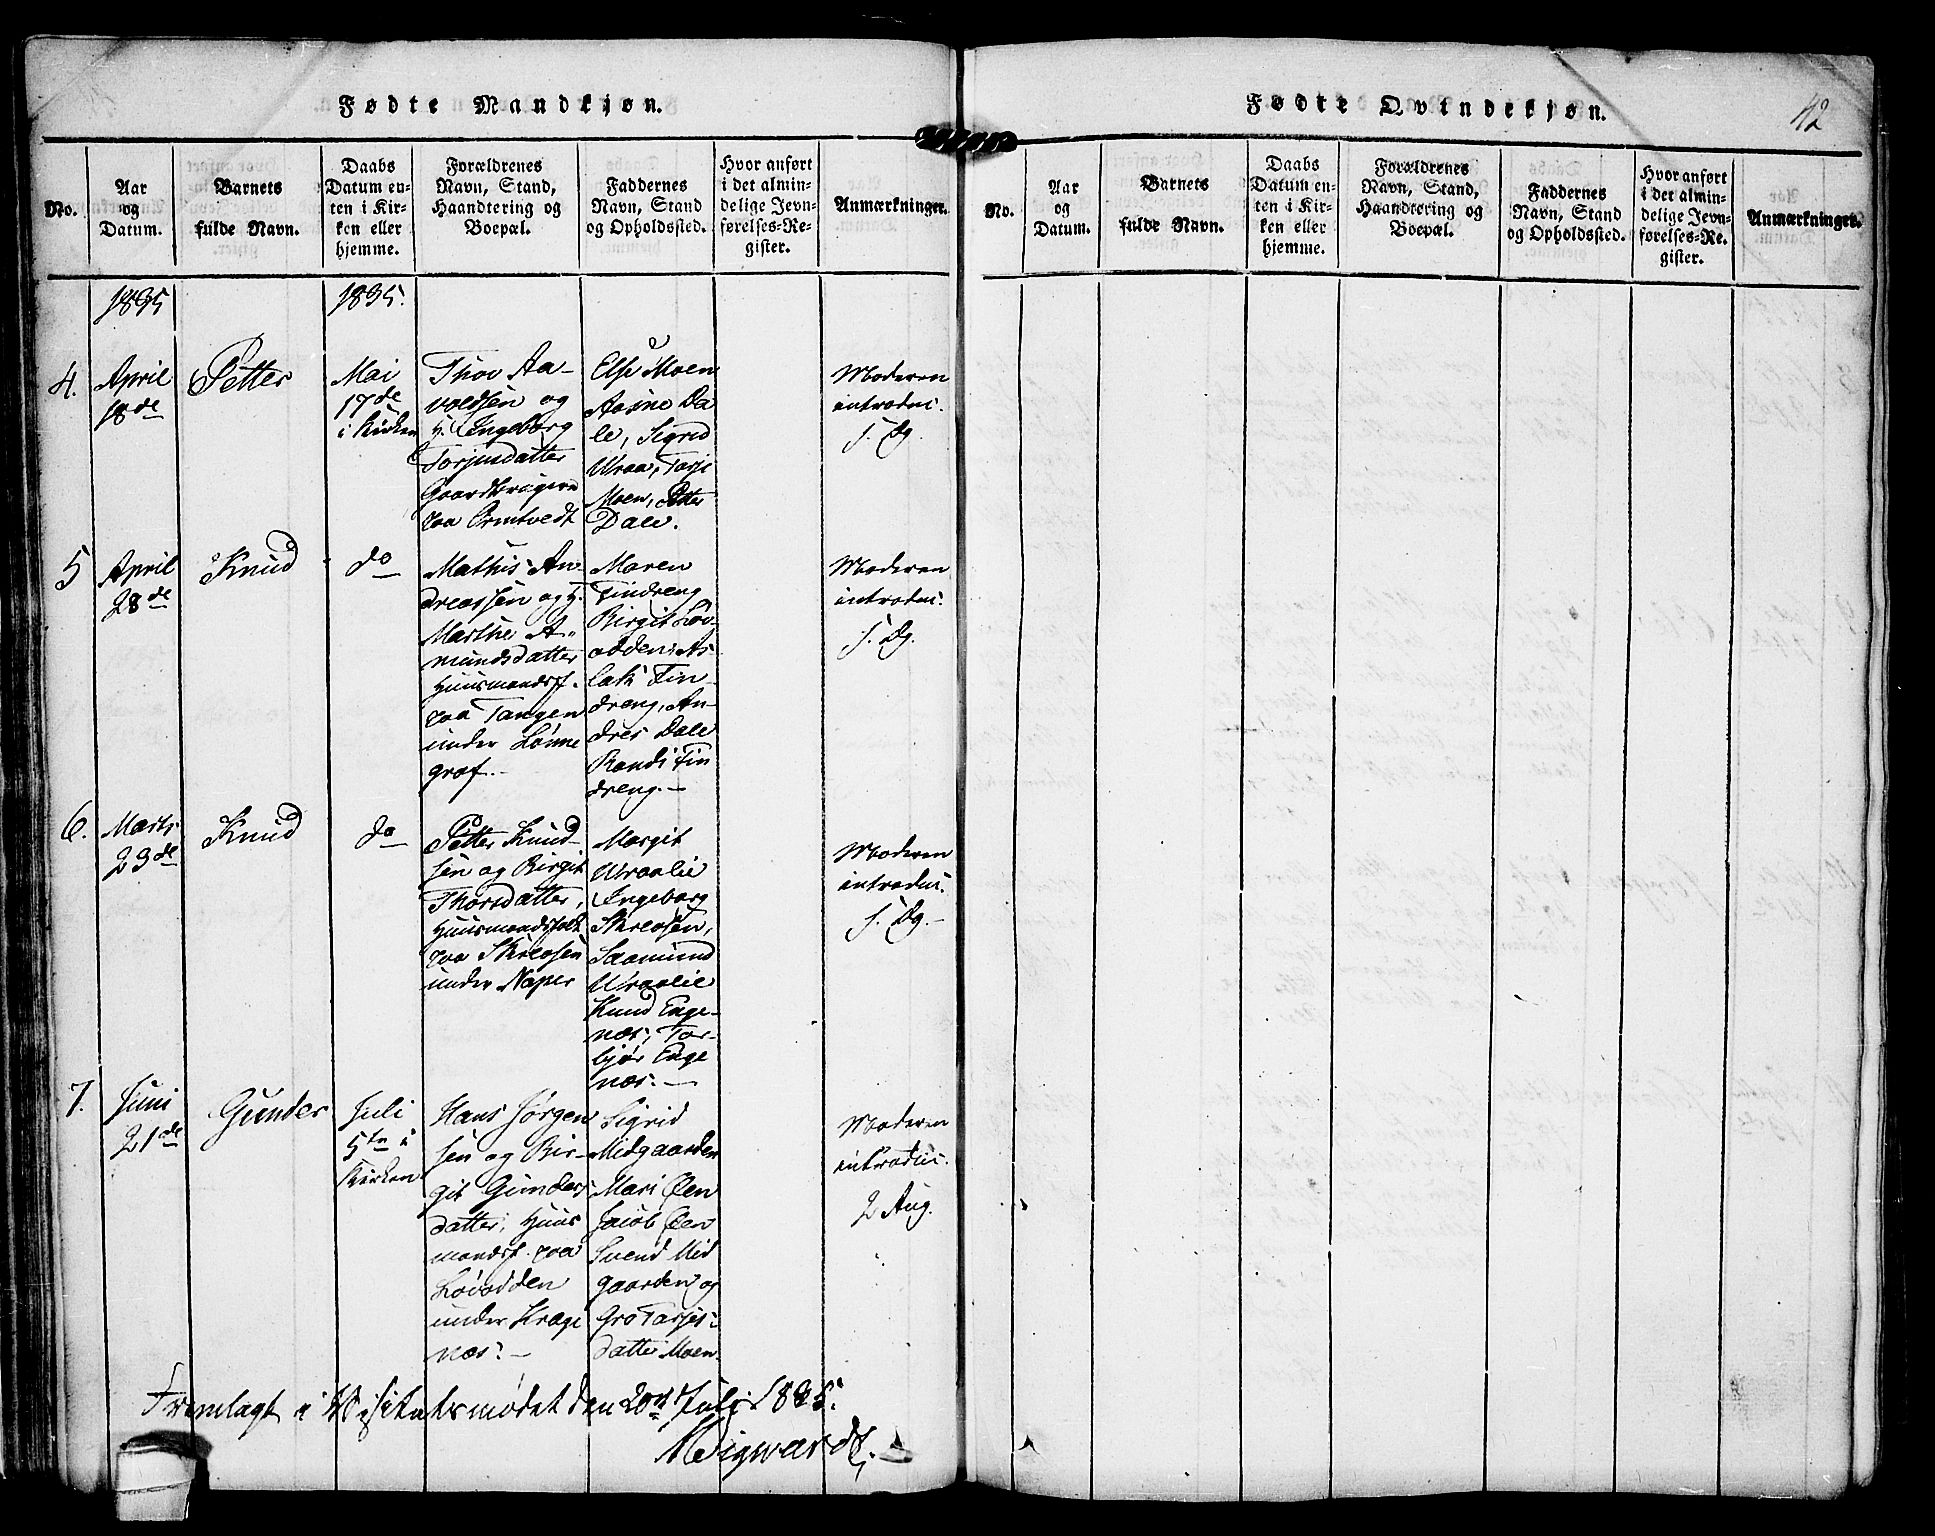 Fødte Mandkjøn.
No.
Aar
og
Datum.
Barnets
fulde Navn.
Daabs
Datum en-
ten i Kir-
ken eller
hjemme.
Forældrenes
Navn, Stand,
Haandtering og
Boepæl.
Faddernes
Navn, Stand
og Opholdssted.
Hvor anført
i det almin-
delige Jevn-
førelses-Re-
gister.
Anmærkninger.
1835
1835.
4.
April
18de
Petter
Mai
17de
i Kirken
Thov Aa-
voldsen og
H. Ingeborg
Torjusdatter
Gaardbrugere
paa Ormtvedt
Else Moen
Aasne Da
le, Sigrid
Uraa, Tarje
Moen, Petter
Dale.
Moderen
introduc.
s. Dg.
5
April
28de
Knud
do
Mathis An-
dreassen og H.
Marthe A-
mundsdatter
Huusmandsf.
paa Tangen
under Lønne
graf.-
Maren
Tindreng
Birgit Løv-
odden, As-
lak Tin-
dreng, An-
dres Dale
Randi Tin
dreng.-
Moderen
introduc.
s. Dg.
6.
Marts
23de
Knud
do
Petter Knud-
sen og Birgit
Thorsdatter,
Huusmandsfolk
paa Skreosen
under Naper
Margit
Uraalie
Ingeborg
Skreosen,
Saamund
Uraalie
Knud Enge-
næs, Tor-
bjør Enge
næs.-
Moderen
introduc.
s. Dg.-
7.
Juni
21de
Gunder
Juli
5te i
Kirken
Hans Jørgen
sen og Bir-
git Gunders
datter, Huus
mandsf. paa
Løvodden
under Krage
næs.-
Sigrid
Midgaarden
Mari Øen
Jacob Øen
Svend Mid
gaarden og
Gro Tarjes-
datter Moen.
Moderen
introduc.
2 Aug.
Fremlagt i Visitatsmødet den 20de Juli 1835.
Sigwardt.
Fødte Qvindekjøn.
42
No.
Aar
og
Datum.
Barnets
fulde Navn.
Daabs
Datum en-
ten i Kir-
ken eller
hjemme.
Forældrenes
Navn, Stand,
Haandtering og
Boepæl.
Faddernes
Navn, Stand
og Opholdssted.
Hvor anført
i det almin-
delige Jevn-
førelses-Re-
gister.
Anmærkninger.